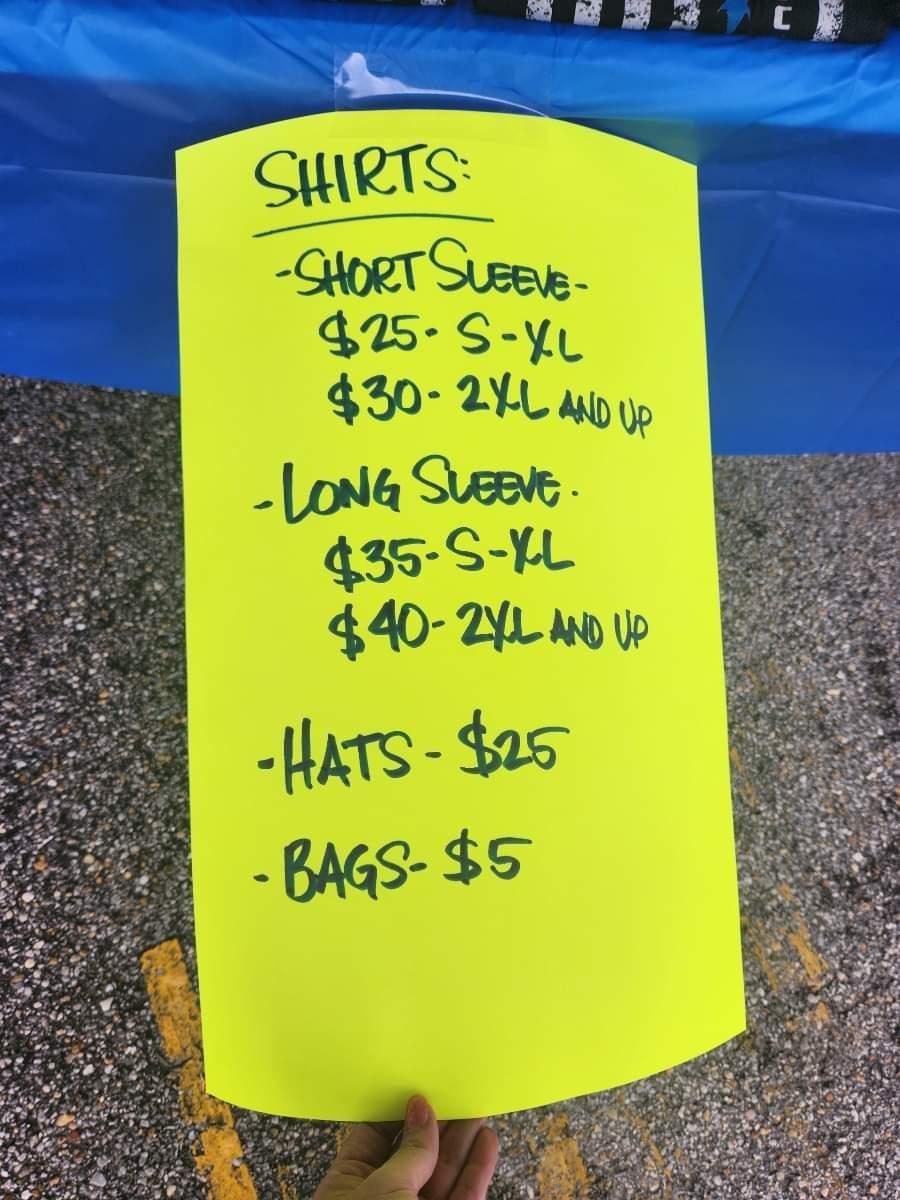 C
SHIRTS:
-SHORT SLEEVE-
$25- S-XL
$30- 2XL AND UP
-LONG SLEEVE.
$35- S-XL
$40- 2XL AND UP
-HATS- $25
-BAGS- $5